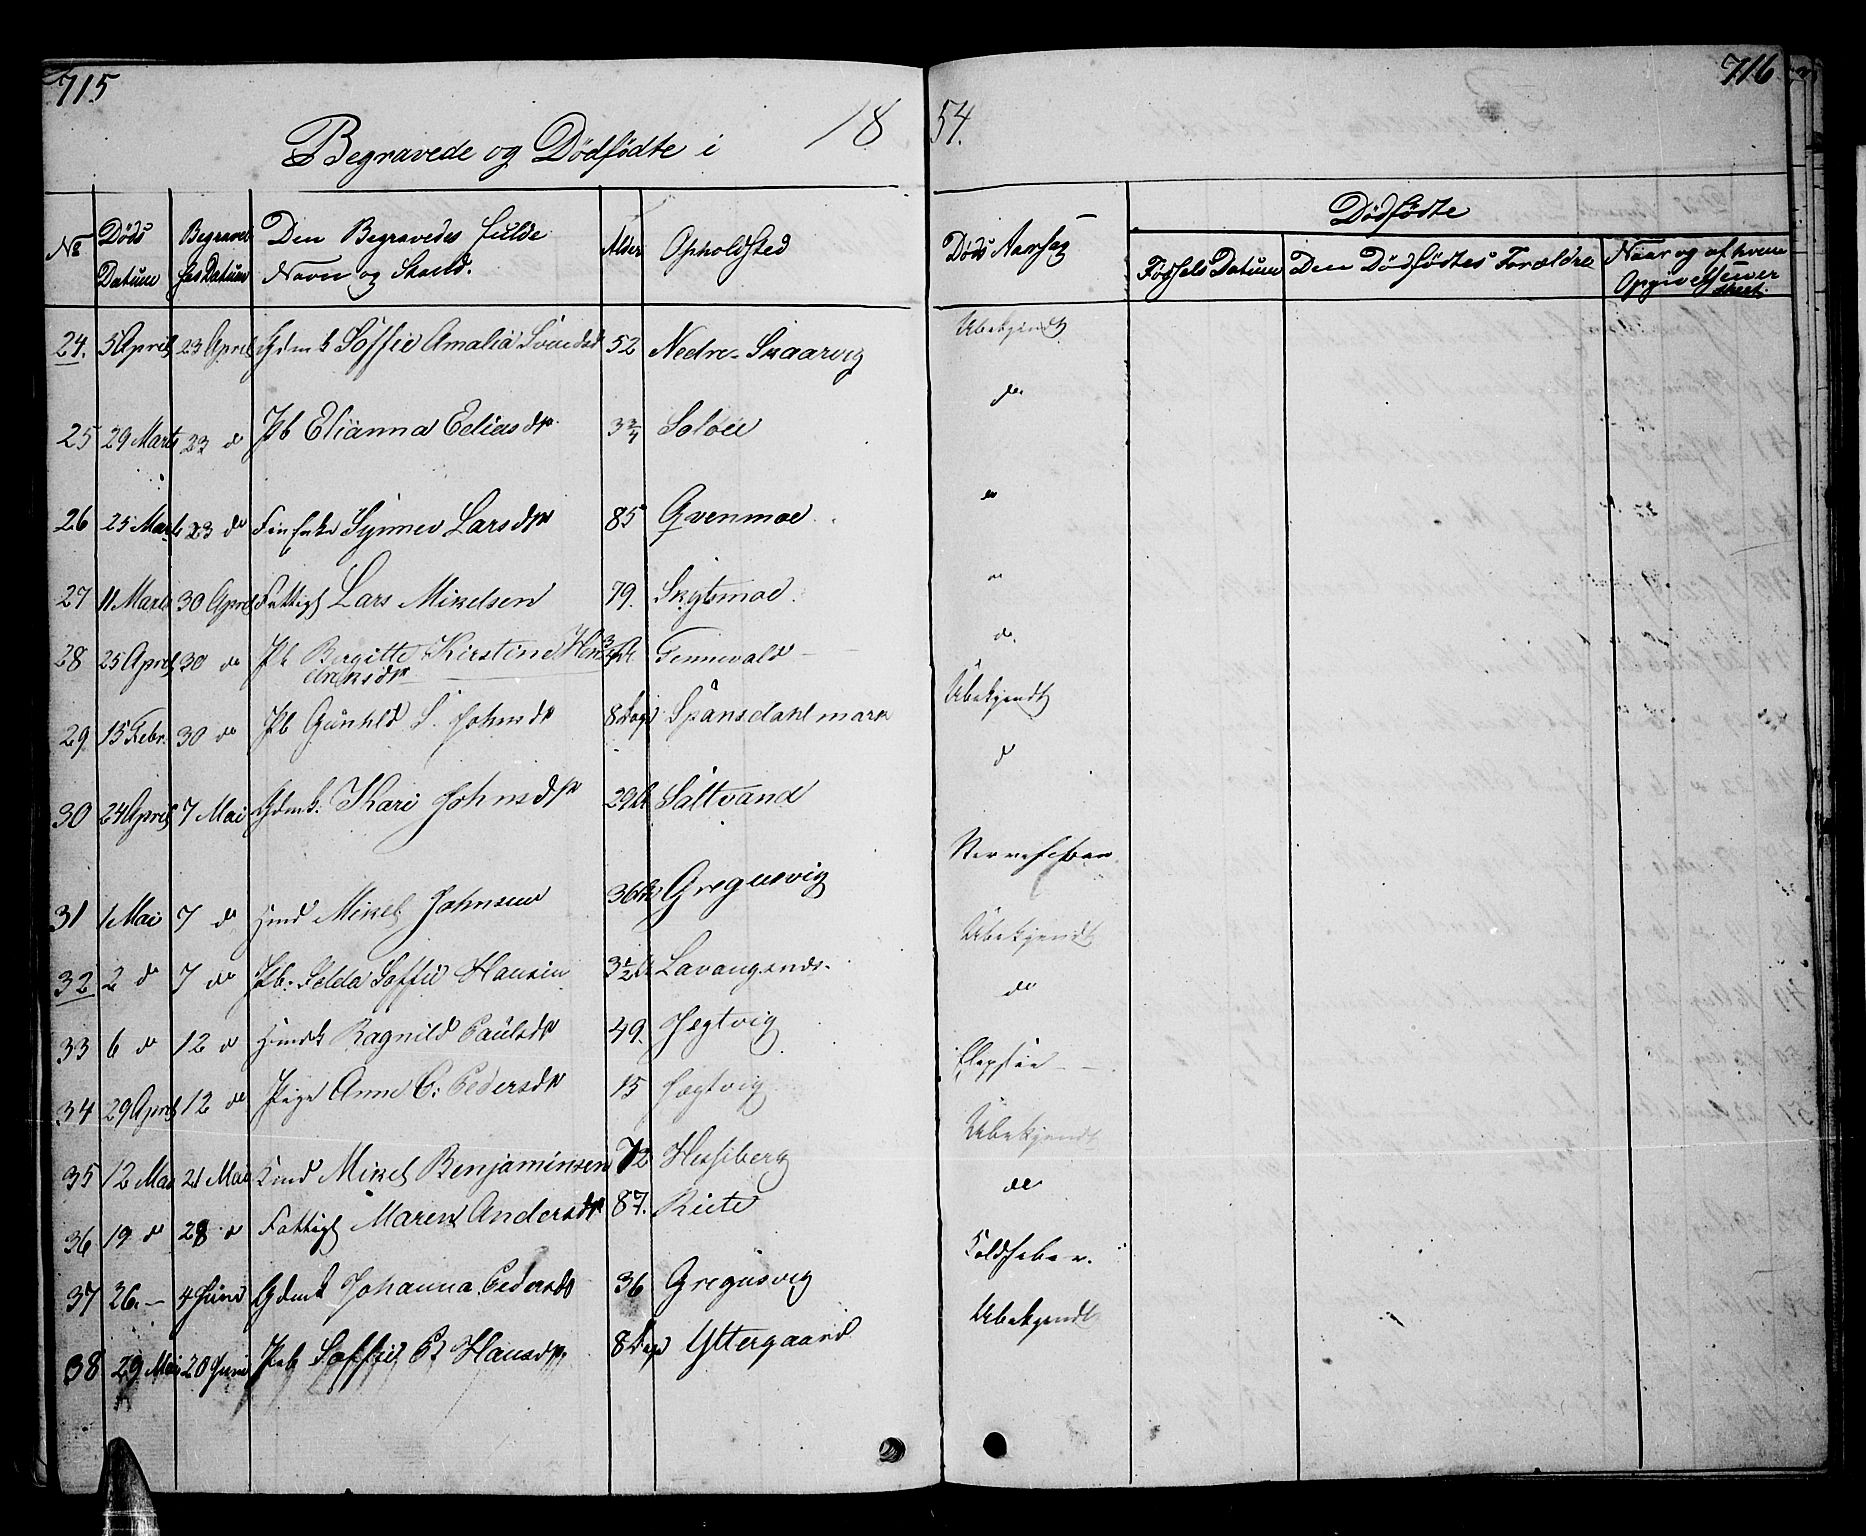 715
716
Begravede og Dødfødte i 18 54.
No Døds Datum Begravelses Datum Den Begravedes fulde Navn og Stand. Alder Opholdsted Døds Aarsag Dødfødte
Fødsels Datum Den Dødfødtes Forældre Naar og af hvem
24. 5 April 23 April Gdmk Soffie Amalia 52 Nedre-Skaarvig Ubekjendt
25 29 Marts 23 do Pb Elianna Eeliasdtr 3 3/4 Soløe do
26 25 Marts 23 do Synnev Larsdtr 85 Qvenmoe do
27 11 Marts 30 April Fattigl Lars Mikelsen 79. Skytsmoe do
28 25 April 30 do Pb Birgitte Kirstine Hendriksdtr Tennevold do
29 15 Febr. 30 do Pb Gunhld S. Johnsdtr 8 Dage Spånsdahl mark Ubekjendt
30 24 April 7 Mai Gdmk. Kari Johnsdtr 29 Saltvand d
31 1 Mai 7 do Hmd Mikel Johnsen 36 Gregusvig Nervefeber
32 2 do 7 do Pb. Selda Soffie Hansen 3 1/2 Lavangsnes. Ubekjendt
33 6 do 12 do Hmdk Ragnild Paulsdtr 49. Hegtvig do
34 29 April 12 do Pige Anne C. Pedersdtr 15 Hegtvig
35 12 Mai 21 Mai Mikel Benjaminsen 72 Hessiberg Ubekjendt
36 19 do 28 do Fattigl Maren Andersdtr 87. do
37 26. — 4 Juni Gdmk Johanna Pedersdtr 36 Gregusvig Koldfeber.
38 29 Mai 20 Juni Pb Soffie Hansdtr 8 Dage Yttergaard Ubekjendt